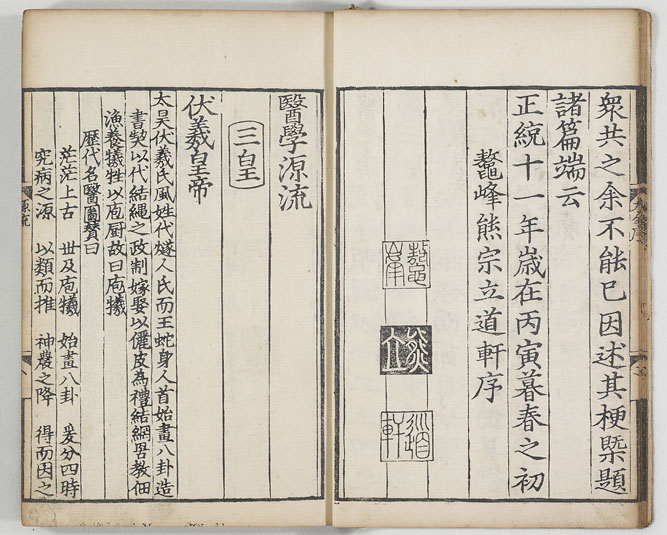 衆共之余不能已因述其梗槩題
諸篇端云
正統十一年歲在丙寅暮春之初
鼇峰熊宗立道軒序
鼇峯
熊立
道軒
醫學源流
三皇
伏羲皇帝
太昊伏羲氏風姓代燧人氏而王蛇身人首始畫八卦造
書契以代結繩之政制嫁娶以儷皮為禮結網罟教佃
漁養犧牲以庖厨故曰庖犧
歷代名醫圖贊曰
茫茫上古 世及庖犧 始畫八卦 爰分四時
究病之源 以類而推 神農之降 得而因之